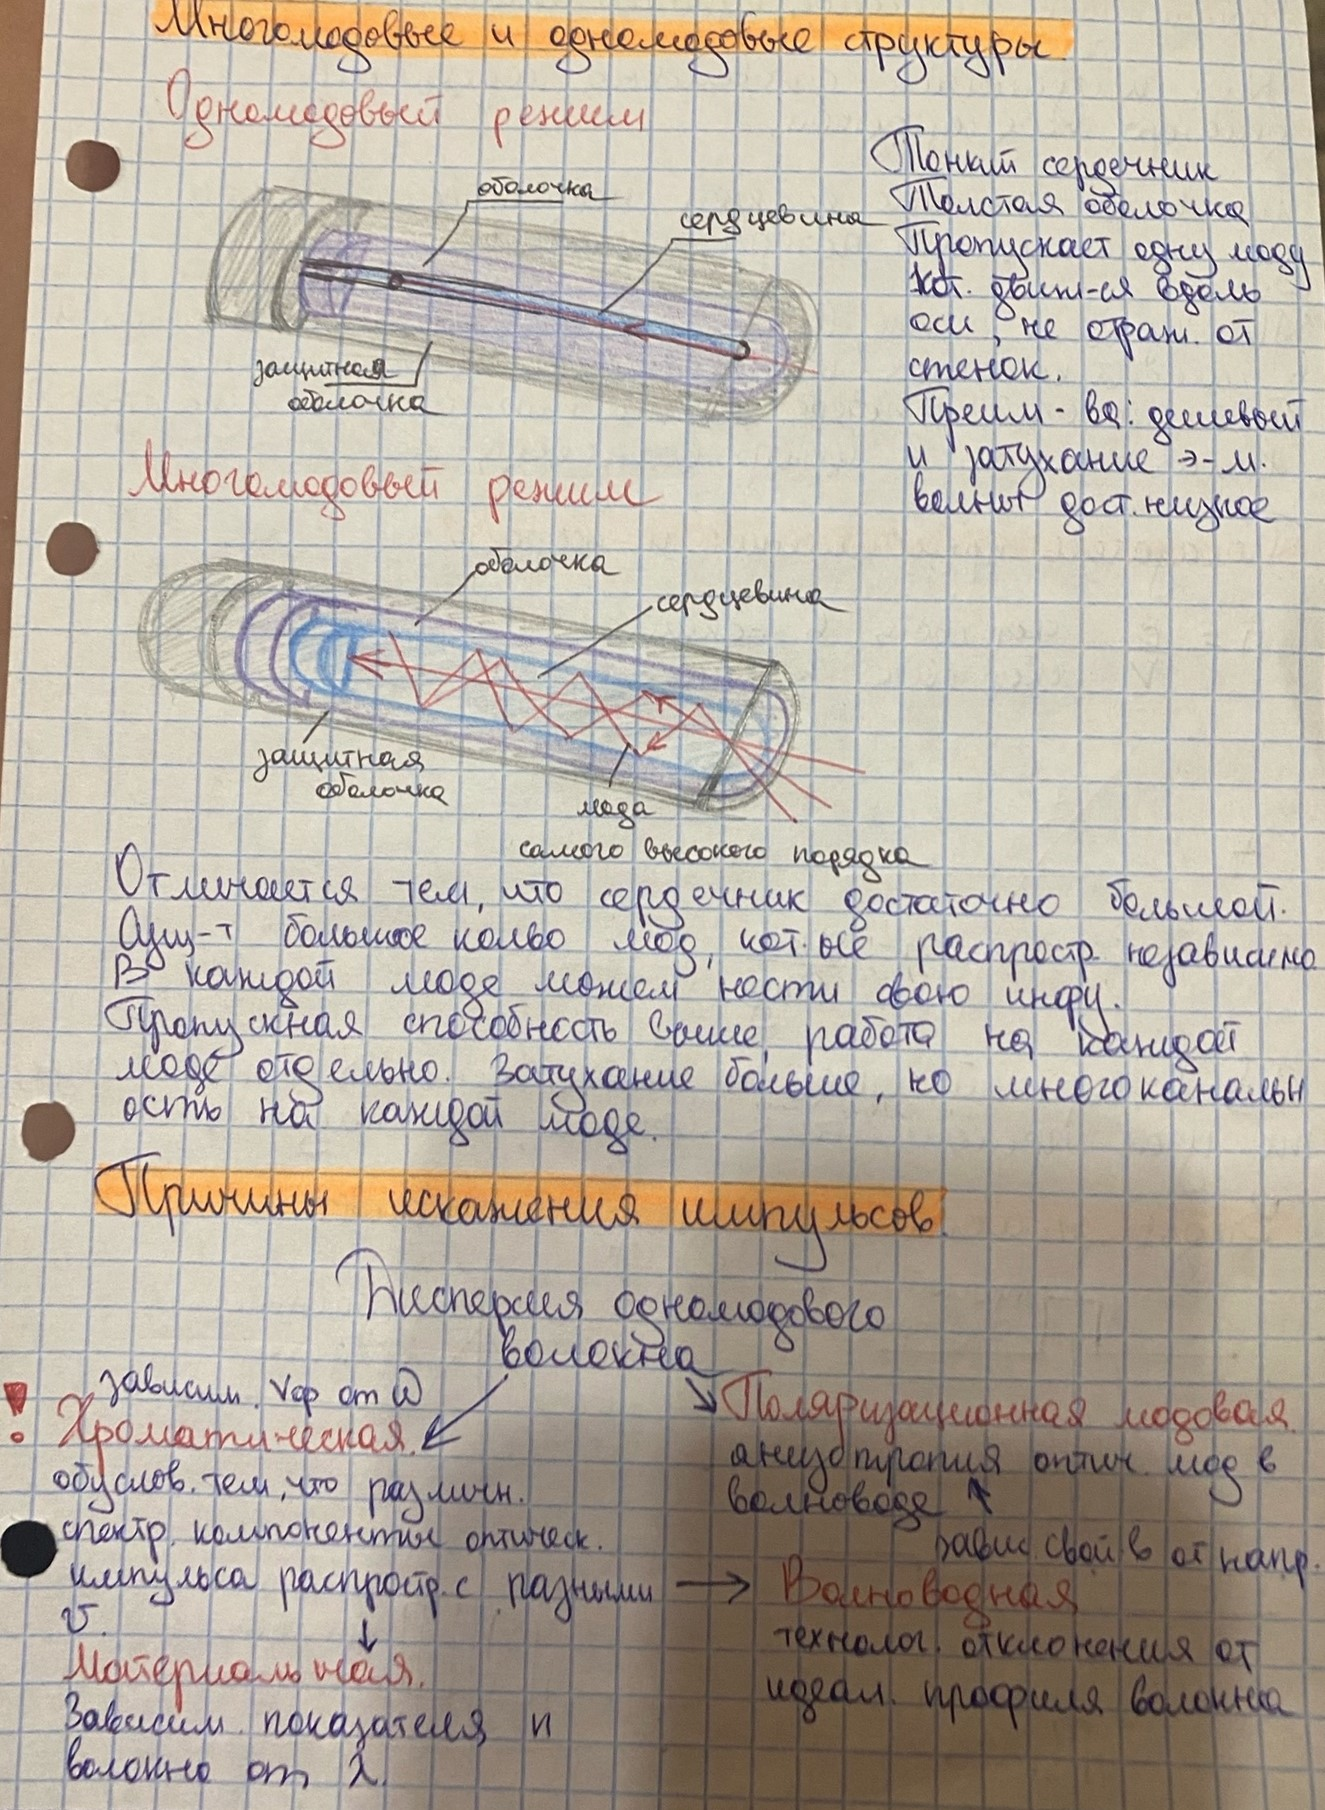 Многомодовые и одномодовые структуры
Одномодовый режим
оболочка
сердцевина
защитная
оболочка
Тонкий сердечник
Толстая оболочка
Пропускает одну моду
кот. движ-ся вдоль
оси, не отраж. от
стенок.
Преим-ва: дешевый
и затухание э-м.
волны дост. низкое
Многомодовый режим
оболочка
сердцевина
защитная
оболочка
мода
самого высокого порядка
Отличается тем, что сердечник достаточно большой.
Сущ-т большое колво мод, кот-ые распростр. независимо
В каждой моде можем нести свою инфу.
Пропускная способность выше, работа на каждой
моде отдельно. Затухание больше, но многоканальн
ость на каждой моде.
Причины искажения импульсов.
Дисперсия одномодового
волокна
зависим. Vср от ω
! Хроматическая.
обуслов. тем, что различн.
спектр. компоненты оптическ.
импульса распростр. с разными
v.
Материальная.
Зависим. показателя n
волокно от λ.
Поляризационная модовая.
анизотропия оптич. мод в
волноводе
завис. свойв от напр.
Волноводная
технолог. отклонения от
идеал. профиля волокна